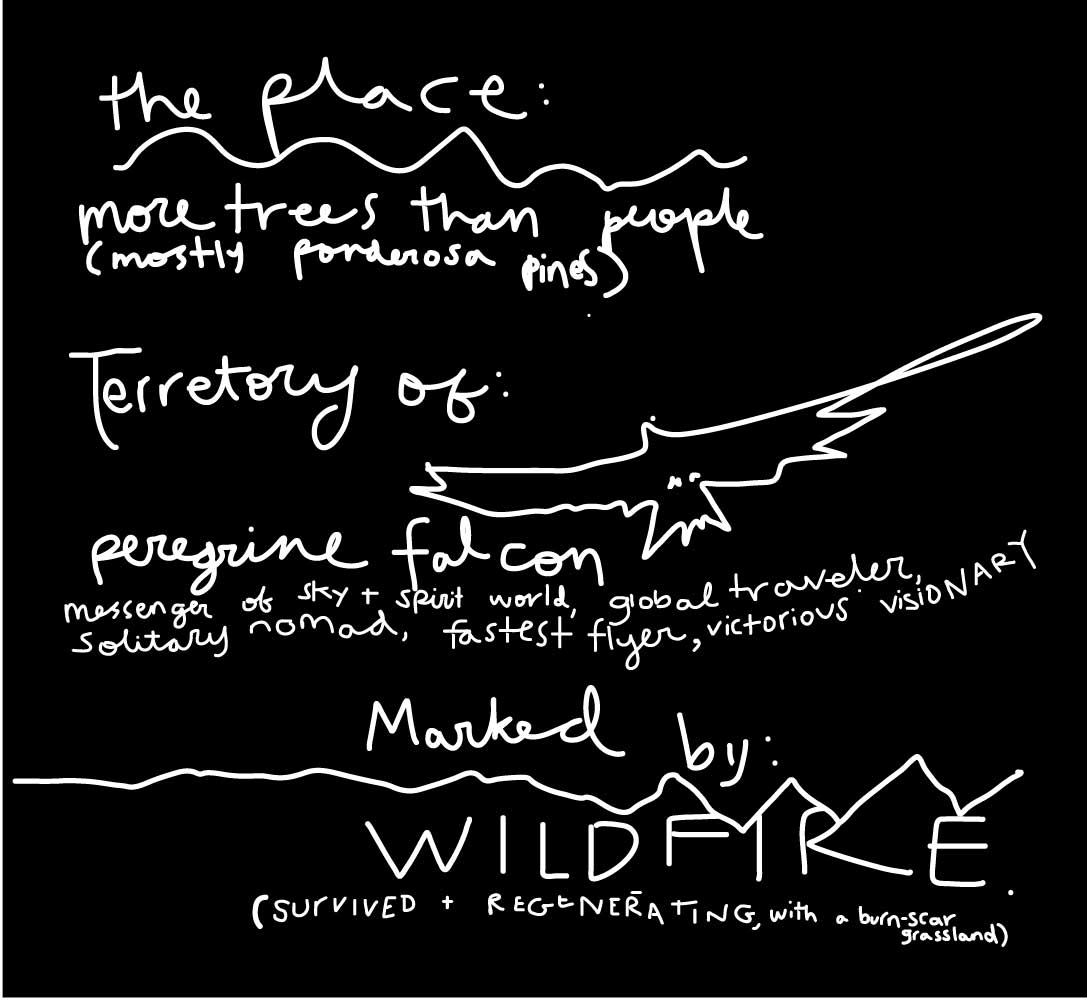 the place:
more trees than people
(mostly ponderosa pines)
Terretory of:
peregrine falcon
messenger of sky + spirit world, global traveler,
solitary nomad, fastest flyer, victorious visiONARY
Marked by:
WILDFIRE.
(SURVIVED + REGENERATING, with a burn-scar
grassland)